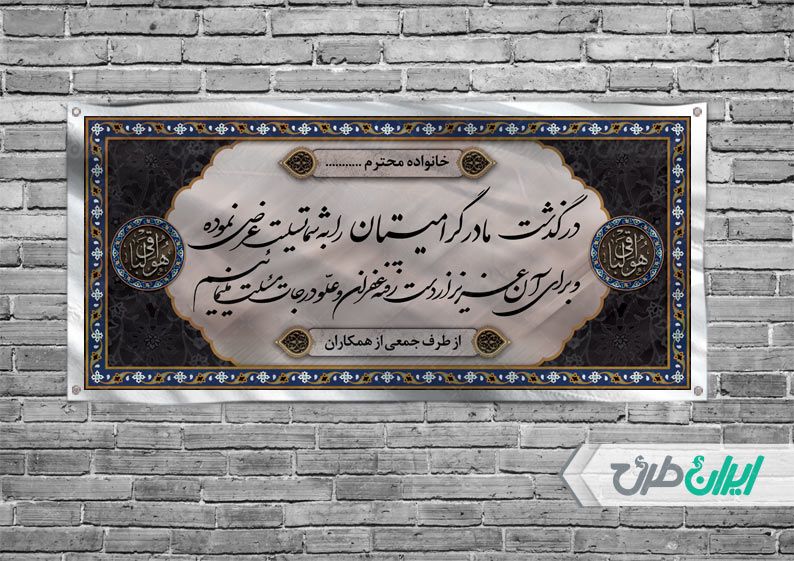 خانواده محترم ...........
درگذشت مادر گرامیتان را به شما تسلیت عرض نموده
و برای آن عزیز از دست رفته غفران و علو درجات مسئلت مینمائیم
از طرف جمعی از همکاران
هو الباقی
هو الباقی
ایران طرح